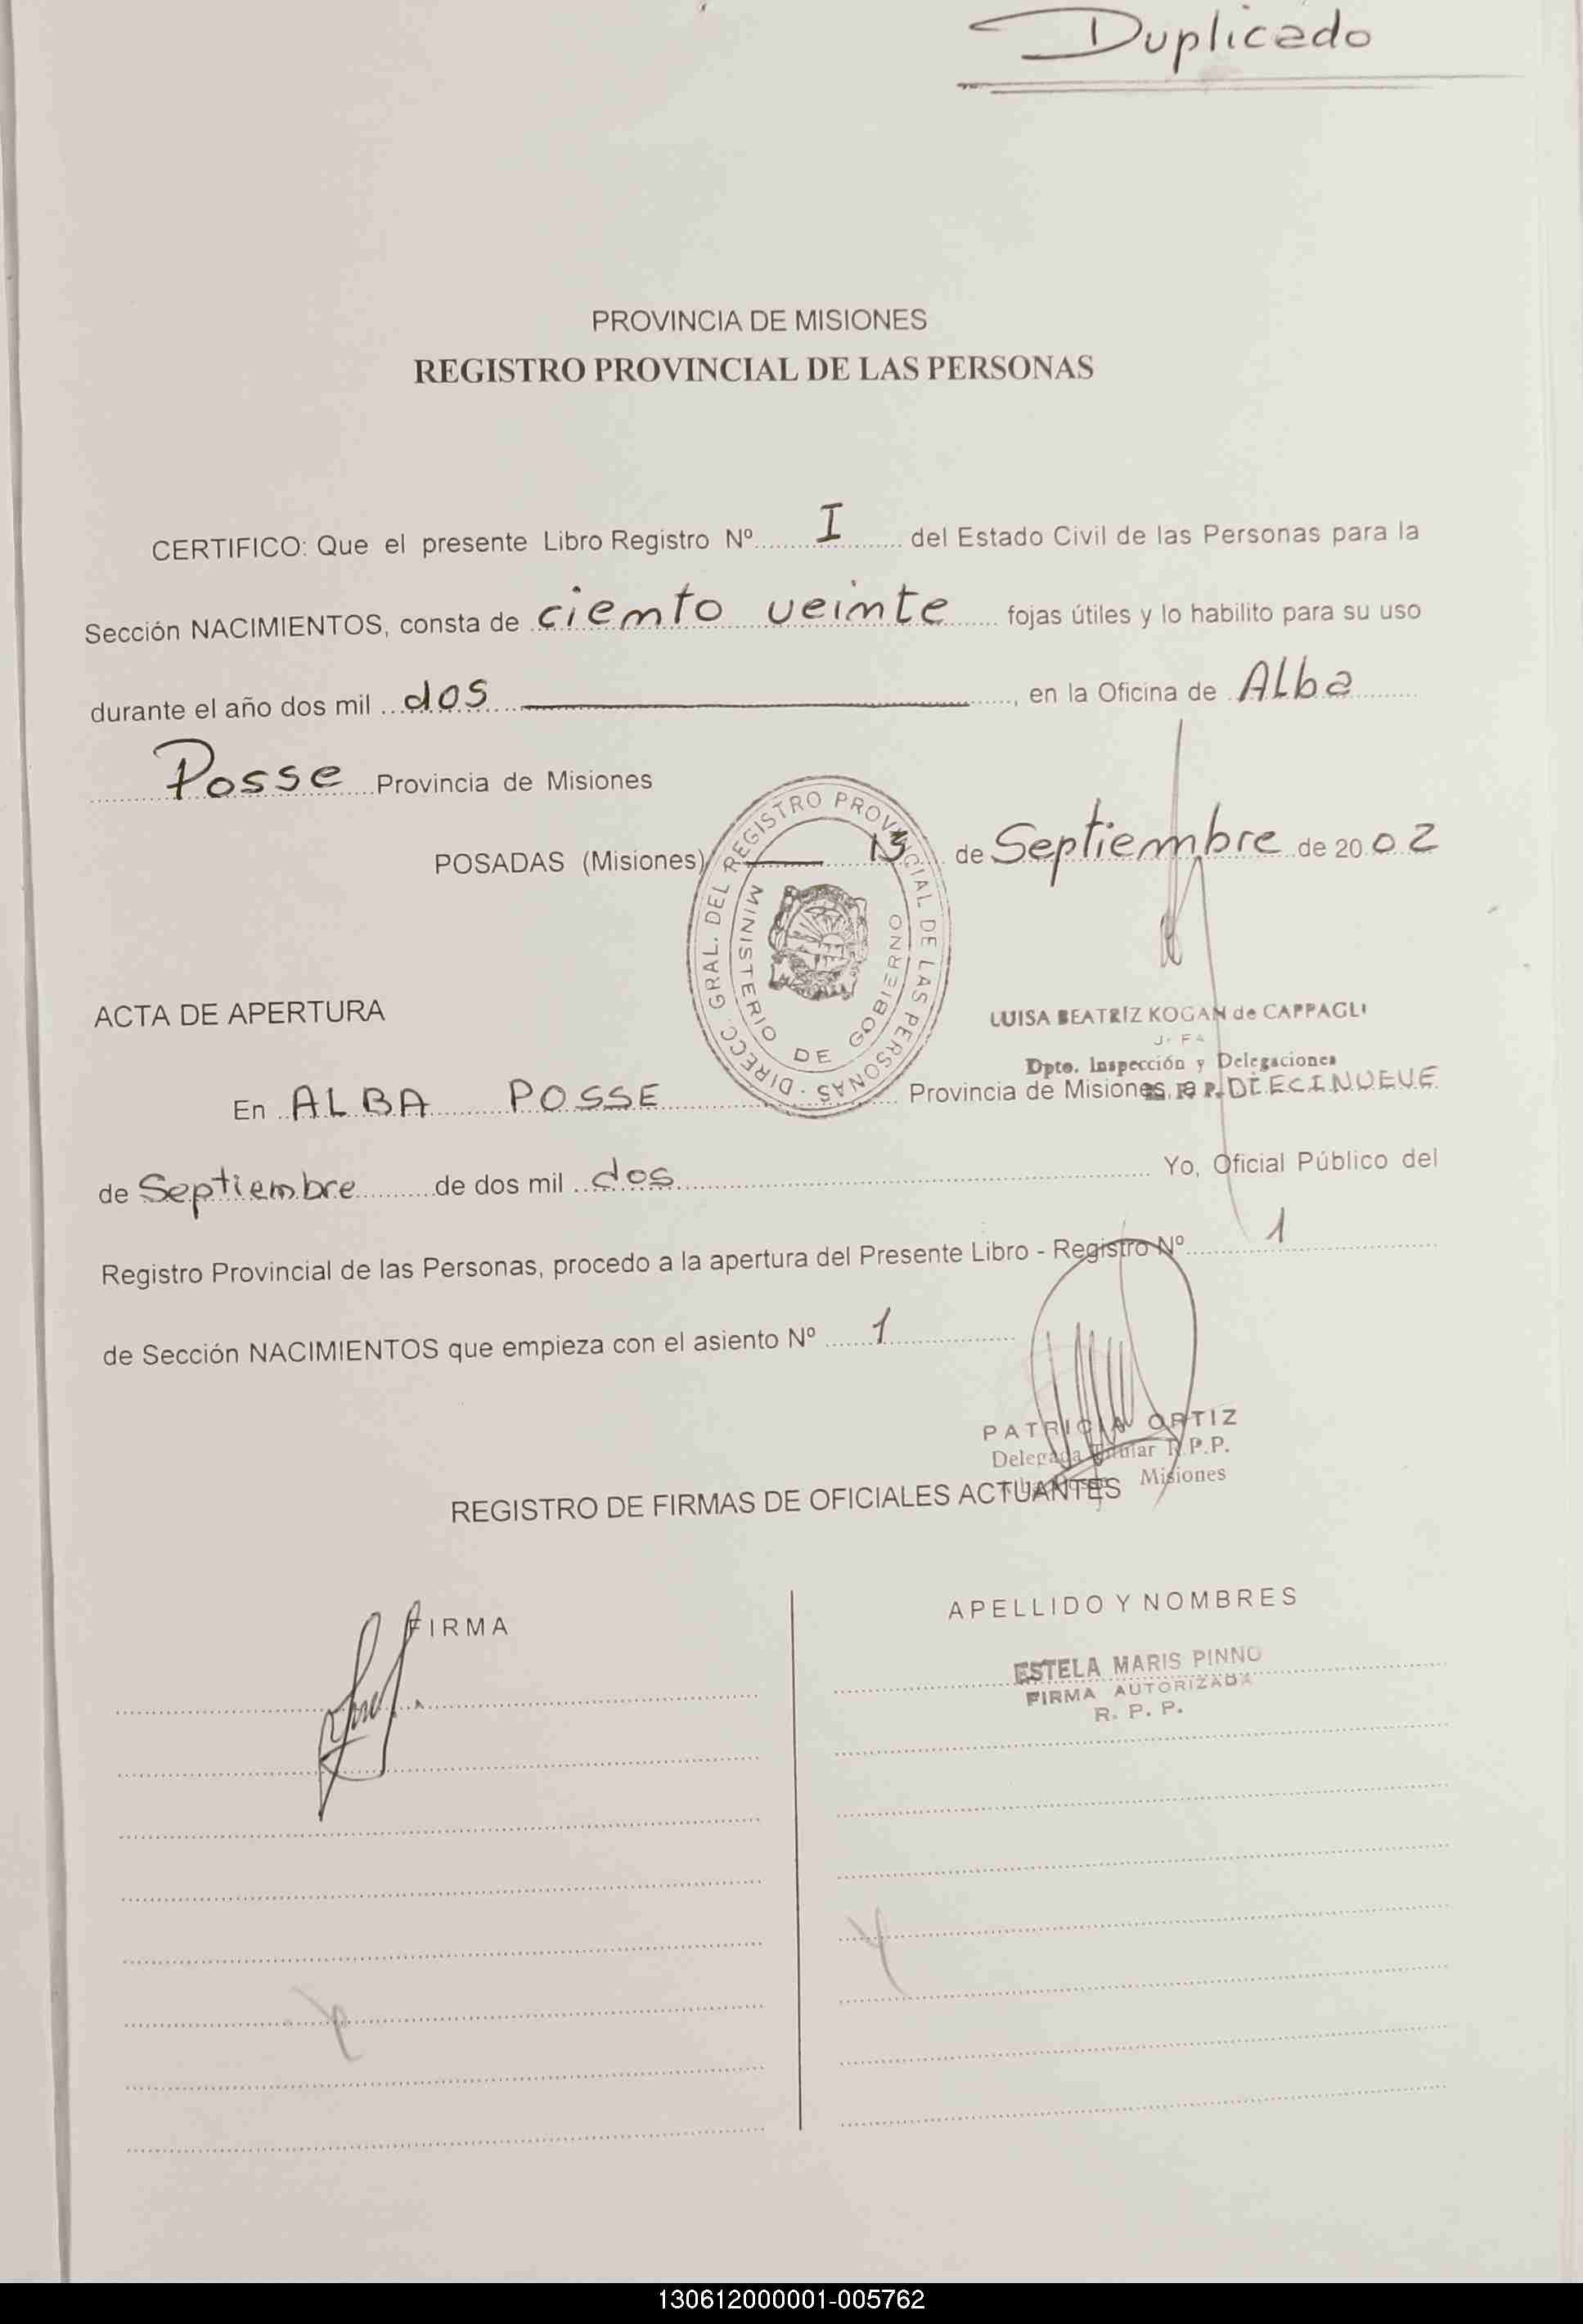 Duplicado
PROVINCIA DE MISIONES
REGISTRO PROVINCIAL DE LAS PERSONAS
CERTIFICO: Que el presente Libro Registro Nº I del Estado Civil de las Personas para la
Sección NACIMIENTOS, consta de ciento veinte fojas útiles y lo habilito para su uso
durante el año dos mil dos, en la Oficina de Alba
Posse Provincia de Misiones
POSADAS (Misiones) de Septiembre de 2002
DIRECC. GRAL. DEL REGISTRO PROVINCIAL DE LAS PERSONAS
MINISTERIO DE GOBIERNO
ACTA DE APERTURA
LUISA BEATRIZ KOGAN de CAPPAGLI
JEFA
Dpto. Inspección y Delegaciones
R. P. P.
En ALBA POSSE Provincia de Misiones, a DIECINUEVE
de Septiembre de dos mil dos Yo, Oficial Público del
Registro Provincial de las Personas, procedo a la apertura del Presente Libro - Registro Nº 1
de Sección NACIMIENTOS que empieza con el asiento Nº 1
PATRICIA ORTIZ
Delegada Titular R.P.P.
Misiones
REGISTRO DE FIRMAS DE OFICIALES ACTUANTES
FIRMA
APELLIDO Y NOMBRES
ESTELA MARIS PINNO
FIRMA AUTORIZADA
R. P. P.
130612000001-005762